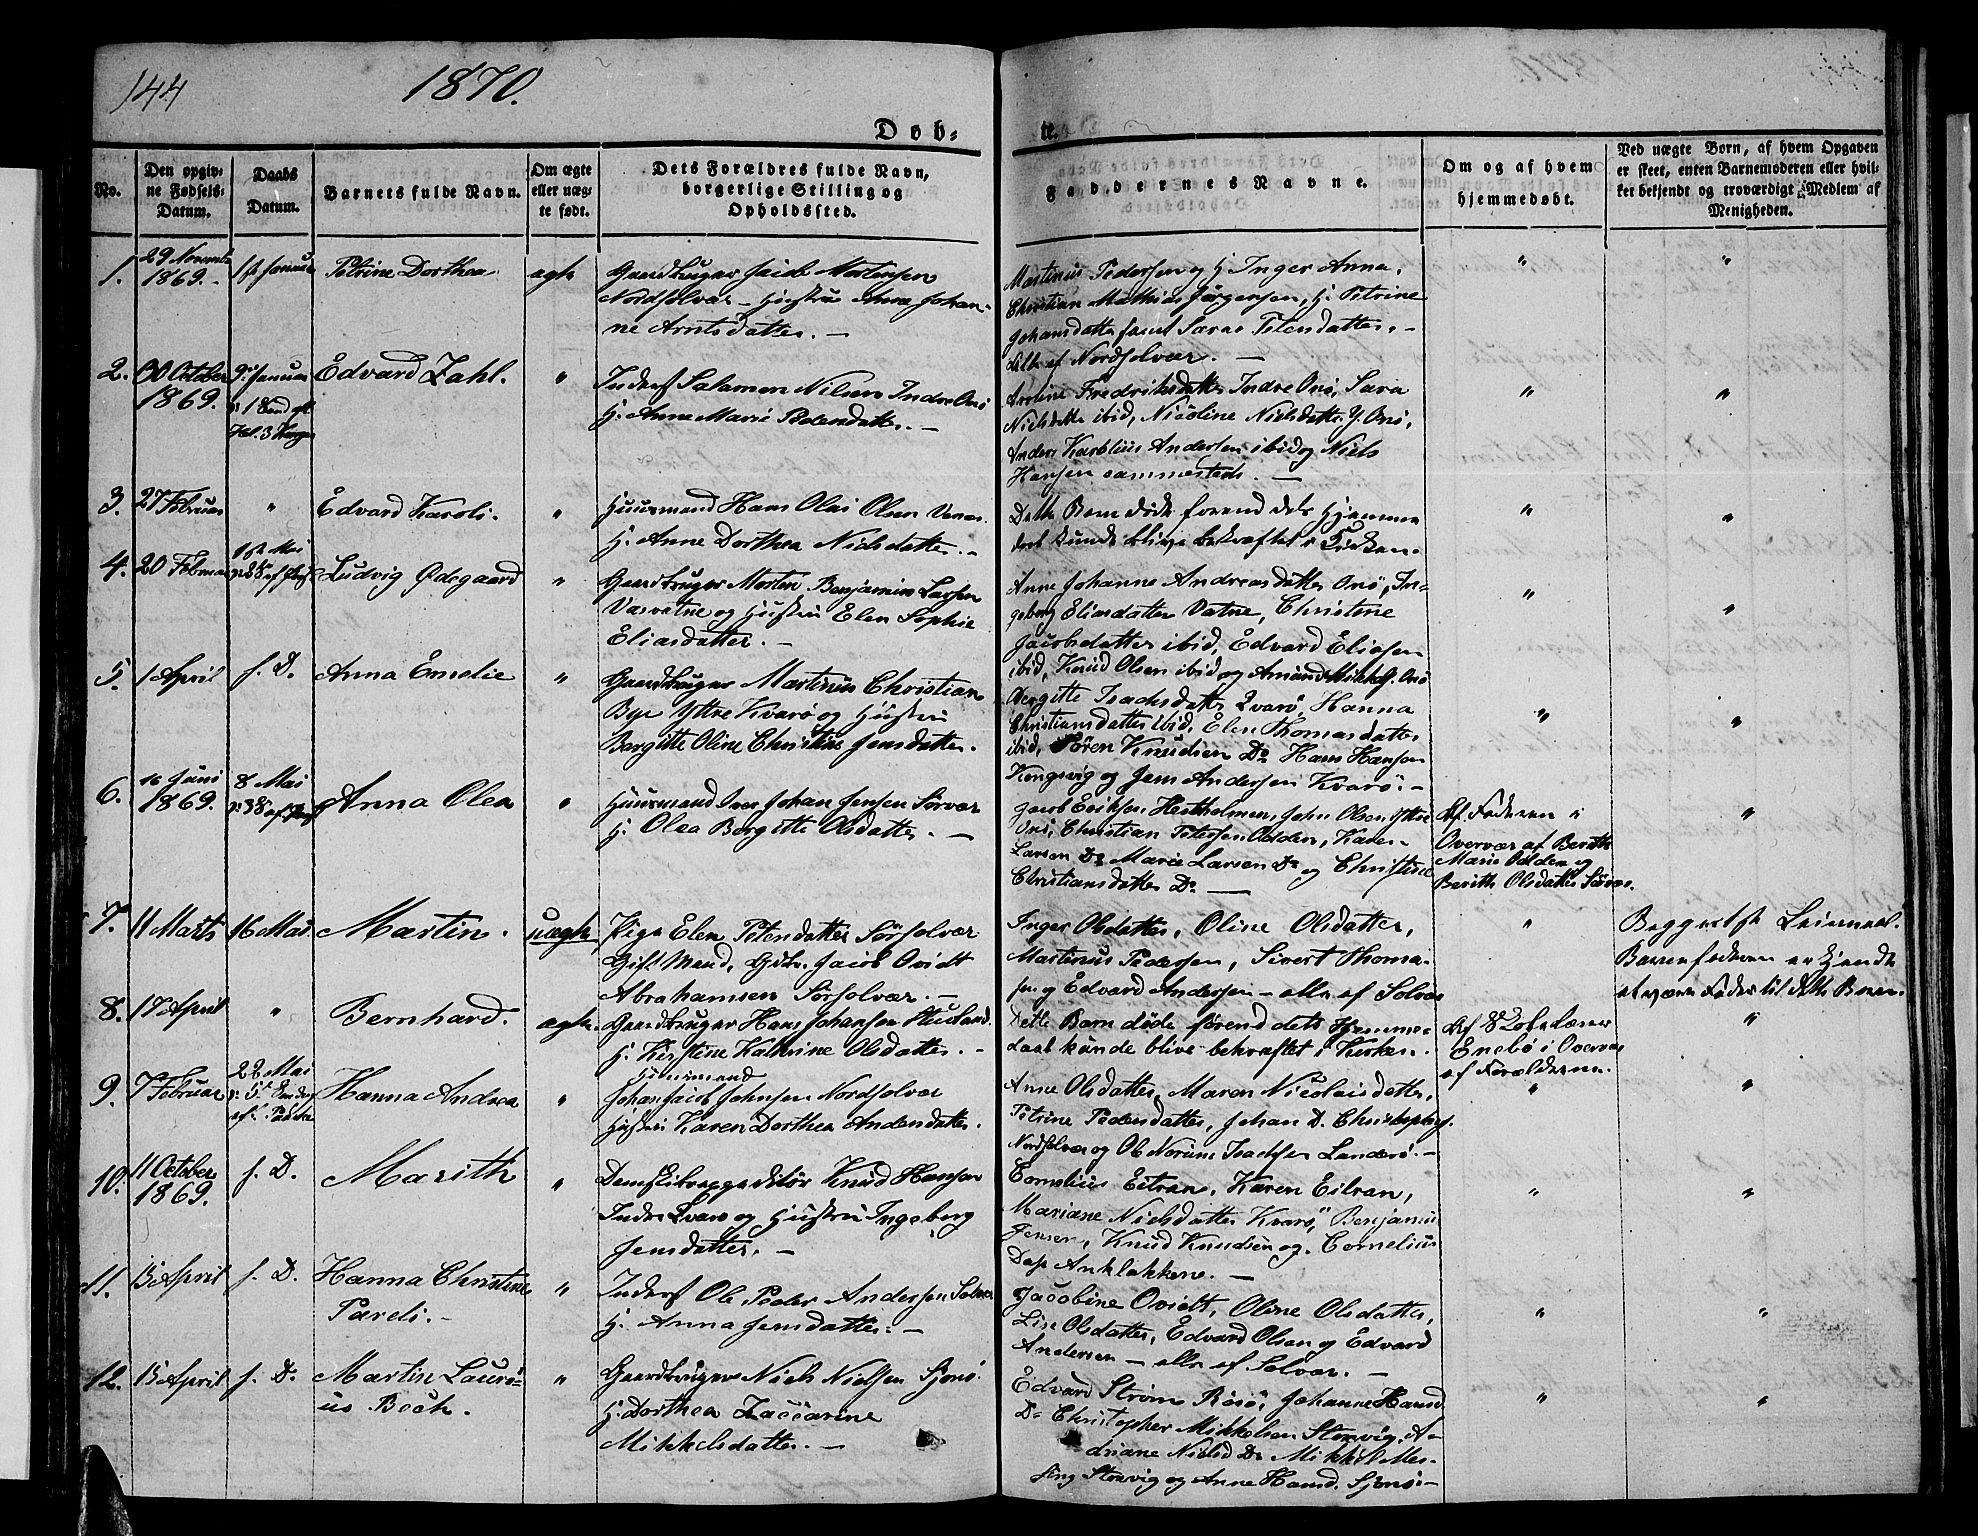 144
1870.
Døb-
te.
No.
Den opgiv-
ne Fødsels-
Datum.
Daabs
Datum.
Barnets fulde Navn.
Om ægte
eller uæg-
te født.
Dets Forældres fulde Navn,
borgerlige Stilling og
Opholdssted.
Faddernes Navne.
Om og af hvem
hjemmedøbt.
Ved uægte Børn, af hvem Opgaven
er skeet, enten Barnemoderen eller hvil-
ket bekjendt og troværdigt Medlem af
Menigheden.
1.
29 Novemb
1869.
1st Januar
Petrine Dorthea
ægte
Gaardbruger Jacob Mortensen
Nordsolvær – Hustru Anna Johan-
ne Arntsdatter. –
Martinus Pedersen og H. Inger Anna,
Christian Mathias Jørgensen, H. Petrine
Johansdatter samt Sarne Petersdatter. –
alle af Nordsolvær. –
"
"
2.
30 October
1869.
9. Januar
Edvard Zahl.
"
Inderst Salamon Nilsen Indre Onø
H. Anne Marie Pedersdatter. –
Arnine Fredriksdatter Indre Onø, Sara
Nielsdatter ibid, Nicoline Nielsdatter Y. Onø,
Anders Karolius Andersen ibid og Niels
Hansen sammesteds. –
"
"
3.
27 Februar
"
Edvard Karoli.
"
Huusmand Hans Olai Olsen
H. Anne Dorthea Nielsdatter. –
Dette Barn døde forend dets Hjemme
daab kunde blive bekræftet i Kirken. –
"
"
4.
20 Februar
1ste Mai
Ludvig Ødegaard
"
Gaardbruger Morten Benjamin Larsen
Vasvatne og Hustru Elen Sophie
Eliasdatter. –
Anne Johanne Andreasdatter Onø, In-
geborg Eliasdatter Vatne, Christine
Jacobsdatter ibid, Edvard Eliasen
ibid, Knud Olsen ibid og Amund Mikkels. Onø
"
"
5.
1 April
s. D.
Anna Emelie
"
Gaardbruger Martinus Christian
Bye Yttre Kvarø og Hustru
Bergitte Oline Christine Jensdatter.
Bergitte Isachsdatter Kvarø, Hanna
Christiansdatter ibid, Elen Thomasdatter
ibid, Søren Knudsen Do Hans Hansen
Kongsvig og Jens Andersen Kvarø. –
"
"
6.
16 Juni
1869.
8 Mai
Anna Olea
"
Huusmand Iver Johan Jensen Sørvær
H. Olea Bergitte Olsdatter. –
Jacob Eriksen Hestholmen, John Olsen Yttre
Onø, Christian Petersen Odden, Karen
Larsen Do Marie Larsen Do og Christine
Christiansdatter Do. –
Af Faderen i
Overvær af Berith
Marie Odden og
Berith Olsdatter Sørvær.
"
7.
11 Marts
16 Mai
Martin.
uægte
Pige Elen Petersdatter Sørsolvær
Gift Mand, Gdbr. Jacob Ovidt
Abrahamsen Sørsolvær. –
Inger Olsdatter, Oline Olsdatter,
Martinus Pedersen, Sivert Thoma-
sen og Edvard Andersen – alle af Solvær
"
Begges 1ste Leiermaal.
Barnefaderen erkjendte
at være Fader til dette Barn.
8.
17 April
"
Bernhard.
ægte.
Gaardbruger Hans Johansen Huuland
H. Kirstine Kathrine Olsdatter. –
Dette Barn døde førend dets Hjemme-
daab kunde blive bekræftet i Kirken. –
Af Skolelærer
Enebø i Overvær
af Forældrene.
"
9.
7 Februar
22 Mai
Hanna Andrea
"
Huusmand
Johan Jacob Johnsen Nordsolvær
Hustru Karen Dorthea Andersdatter.
Anne Olsdatter, Maren Nicolaisdatter,
Petrine Pedersdatter, Johan D. Christophers.
Nordsolvær og Ole Norum Isachsen Landerø. –
"
"
10.
11 October
1869.
s. D.
Marith
"
Dampskibsexpeditør Knud Hansen
Indre Kvarø og Hustru Ingeborg
Jensdatter. –
Cornelius Eitran, Karen Eitran,
Mariane Nielsdatter Kvarø, Benjamin
Jensen, Knud Knudsen og Cornelius
Dass Anklakkene. –
"
"
11.
15 April
s. D.
Hanna Christine
Pareli. –
"
Inderst Ole Peder Andersen Solvær
H. Anna Jensdatter. –
Jacobine Ovidt, Oline Olsdatter,
Lise Olsdatter, Edvard Olsen og Edvard
Andersen – alle af Solvær. –
"
"
12.
15 April
s. D.
Martin Lauri-
us Bech.
"
Gaardbruger Niels Nielsen Sjonø.
H. Dorthea Zaccarine
Mikkelsdatter. –
Edvard Strøm Røsø, Johanne Hansd
Do Christopher Mikkelsen Storvig, A-
driane Nielsd Do Mikkel Mes-
sing Storvig og Anne Hansd. Sjonø. –
"
"